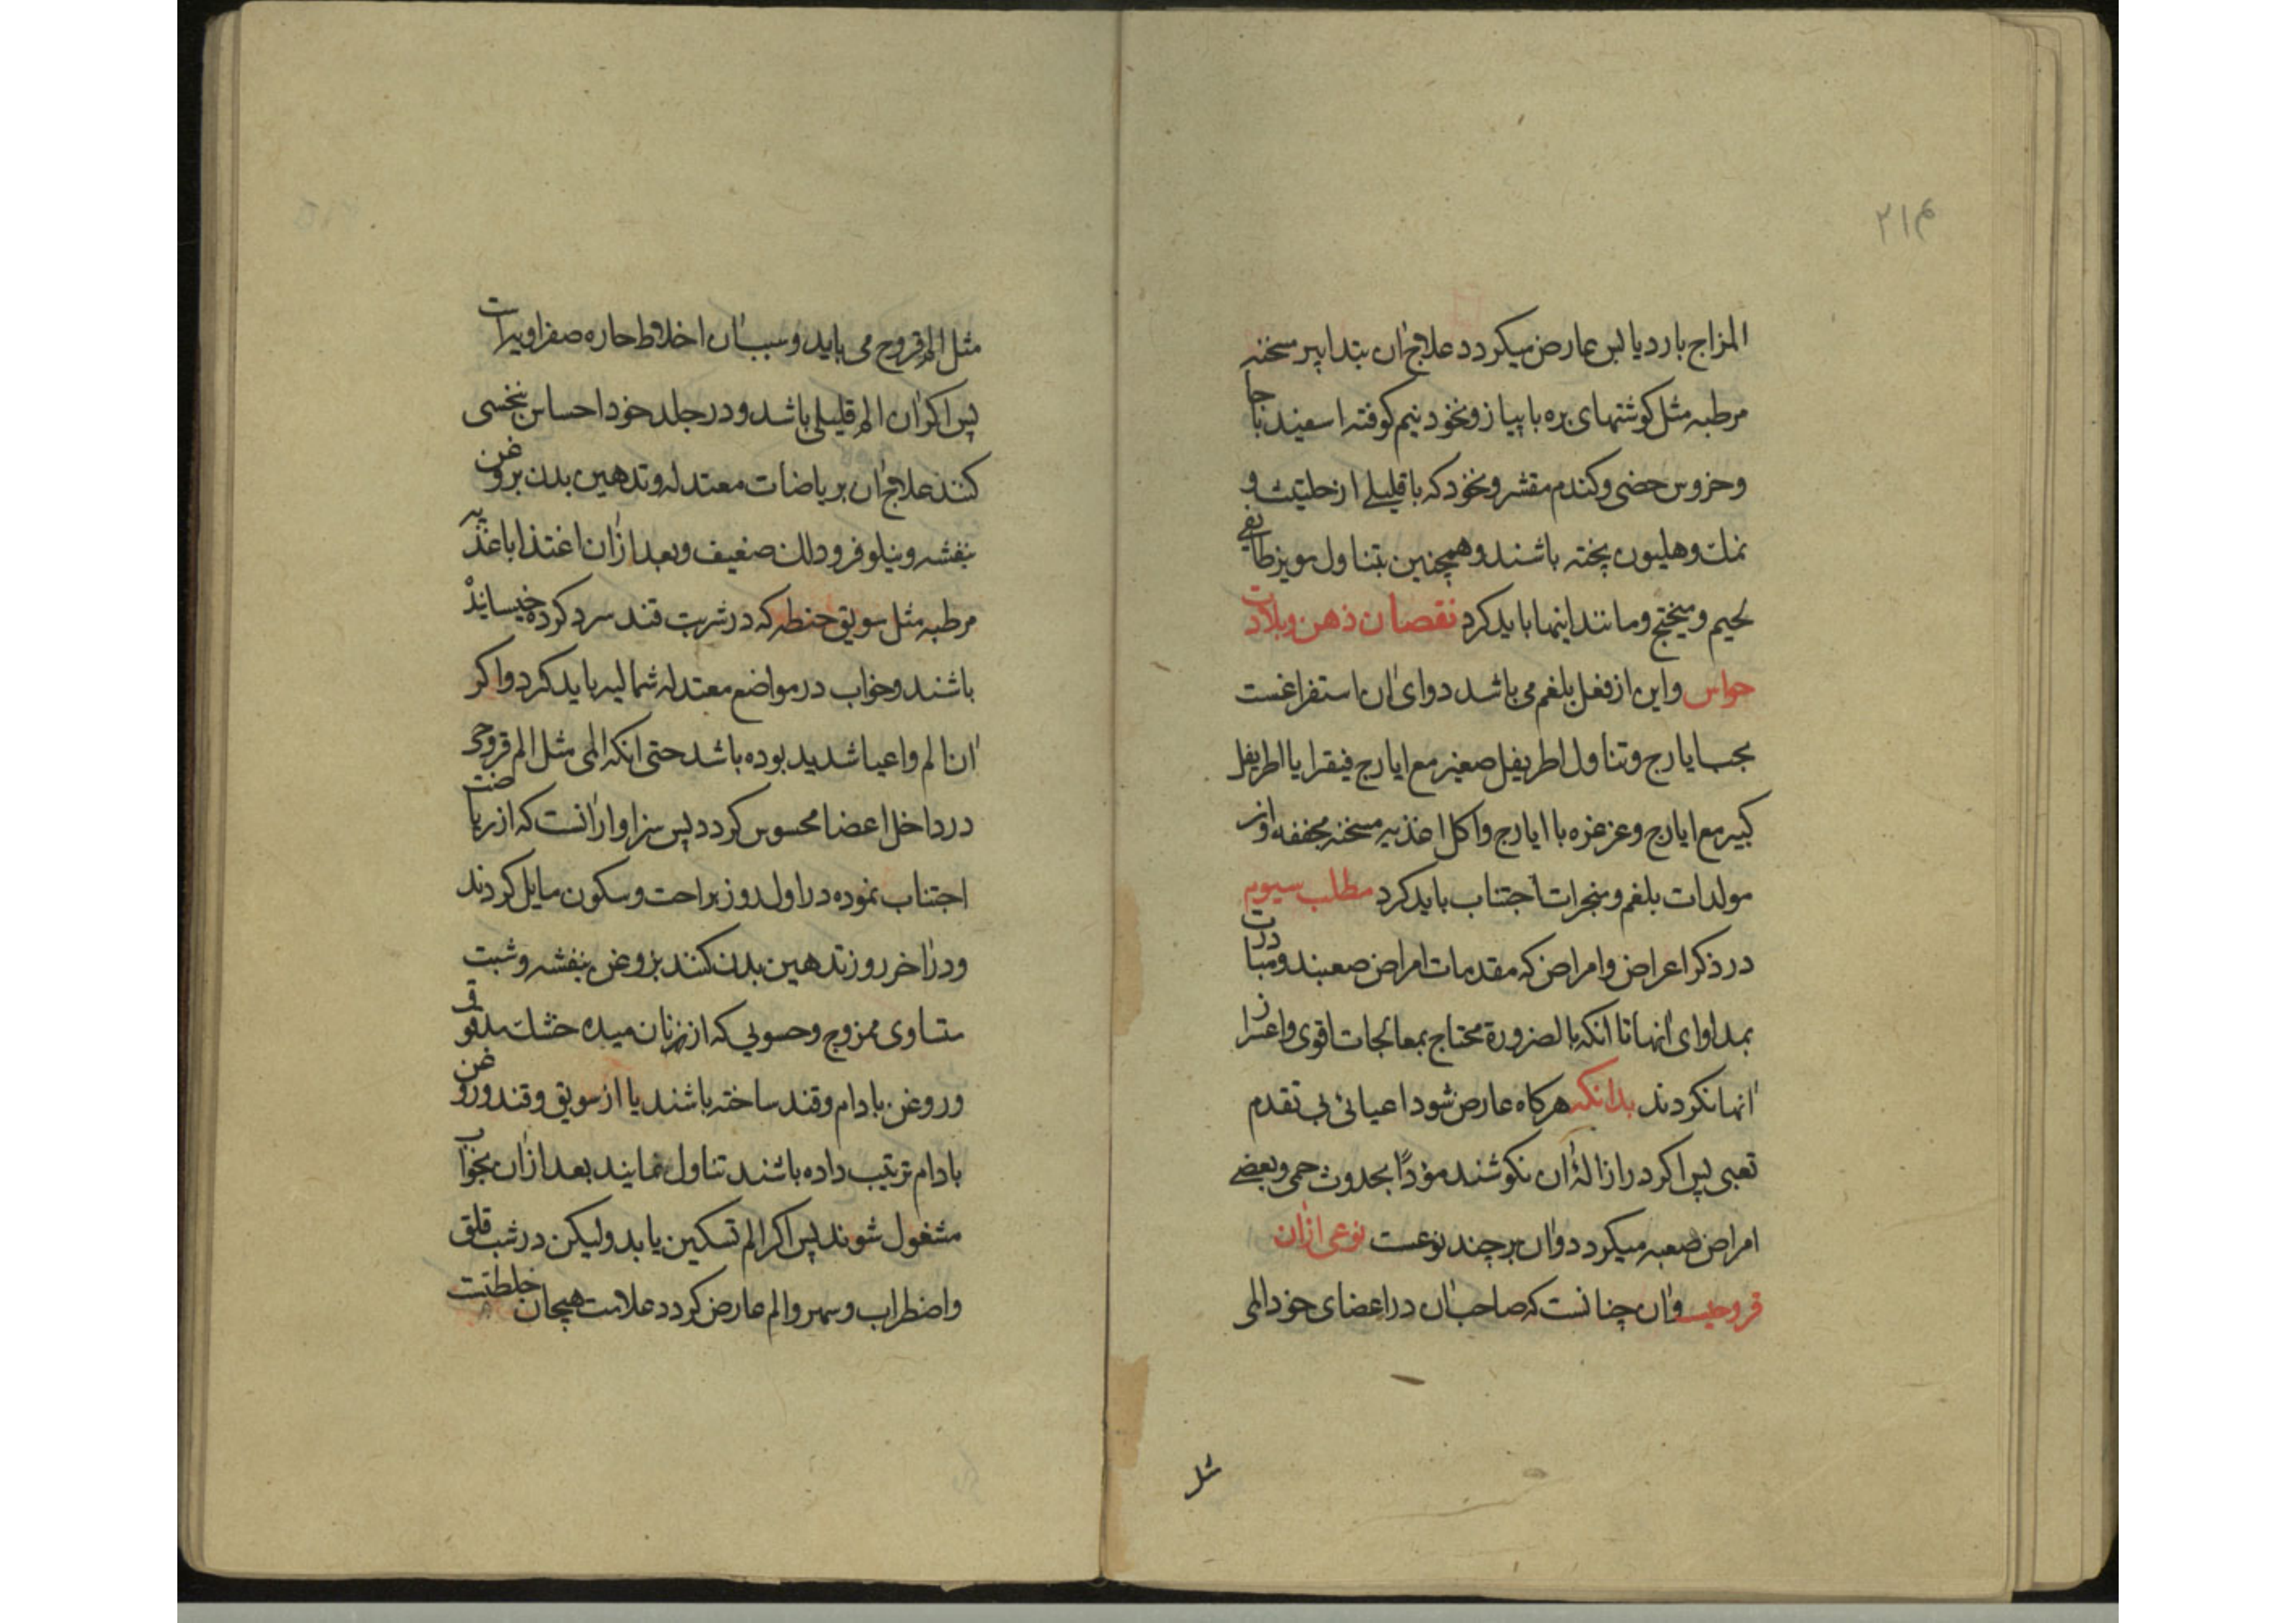 ۲۱۴
المزاج بارد یابس عارض میکردد علاج آن بتدابیر مسخنه
مرطبه مثل کوشتهای بره با پیاز و نخود نیم کوفته اسفیدباجا
و خروس خصی و کندم مقشر و نخود که با قلیلی از حلتیت و
نمک و هلیون پخته باشند و همچنین بتناول مویز طایفی
لحیم و میختج و مانند اینها باید کرد نقصان ذهن و بلادت
حواس و این از فعل بلغم می باشد دوای آن استفراغست
بحب ایارج و تناول اطریفل صغیر مع ایارج فیقرا یا اطریفل
کبیر مع ایارج و غرغره با ایارج و اکل اغذیه مسخنه مجففه و از
مولدات بلغم و مبخرات اجتناب باید کرد مطلب سیوم
در ذکر اعراض و امراض که مقدمات امراض صعبند و مبادرت
بمداوای آنها تا آنکه بالضرورة محتاج بمعالجات اقوی و اعسر از
آنها نکردند بدانکه هرکاه عارض شود اعیائی بی تقدم
تعبی پس اکر در ازالۀ آن نکوشند مؤدّا بحدوث حمی و بعضی
امراض صعبه میکردد و آن بر چند نوعست نوعی از آن
قروحیست و آن چنانست که صاحب آن در اعضای خود المی
مثل
مثل الم قروح می یابد و سبب آن اخلاط حاره صفراویت
پس اکر آن الم قلیلی باشد و در جلد خود احساس نخسی
کنند علاج آن بریاضات معتدله و تدهین بدن بروغن
بنفشه و نیلوفر و دلک ضعیف و بعد از آن اغتذا باغذیه
مرطبه مثل سویق حنطه که در شربت قند سرد کرده خیسانیده
باشند و خواب در مواضع معتدله شمالیه باید کرد و اکر
آن الم و اعیا شدید بوده باشد حتی آنکه المی مثل الم قروحی
در داخل اعضا محسوس کردد پس سزاوار آنست که از ریاضت
اجتناب نموده در اول روز براحت و سکون مایل کردند
و در آخر روز تدهین بدن کنند بروغن بنفشه و شبت
متساوی ممزوج و حسویی که از نان میده خشک مدقوق
و روغن بادام و قند ساخته باشند یا از سویق و قند و روغن
بادام ترتیب داده باشند تناول نمایند بعد از آن بخواب
مشغول شوند پس اکر الم تسکین یابد ولیکن در شب قلق
و اضطراب و سهر و الم عارض کردد علامت هیجان خلطتت